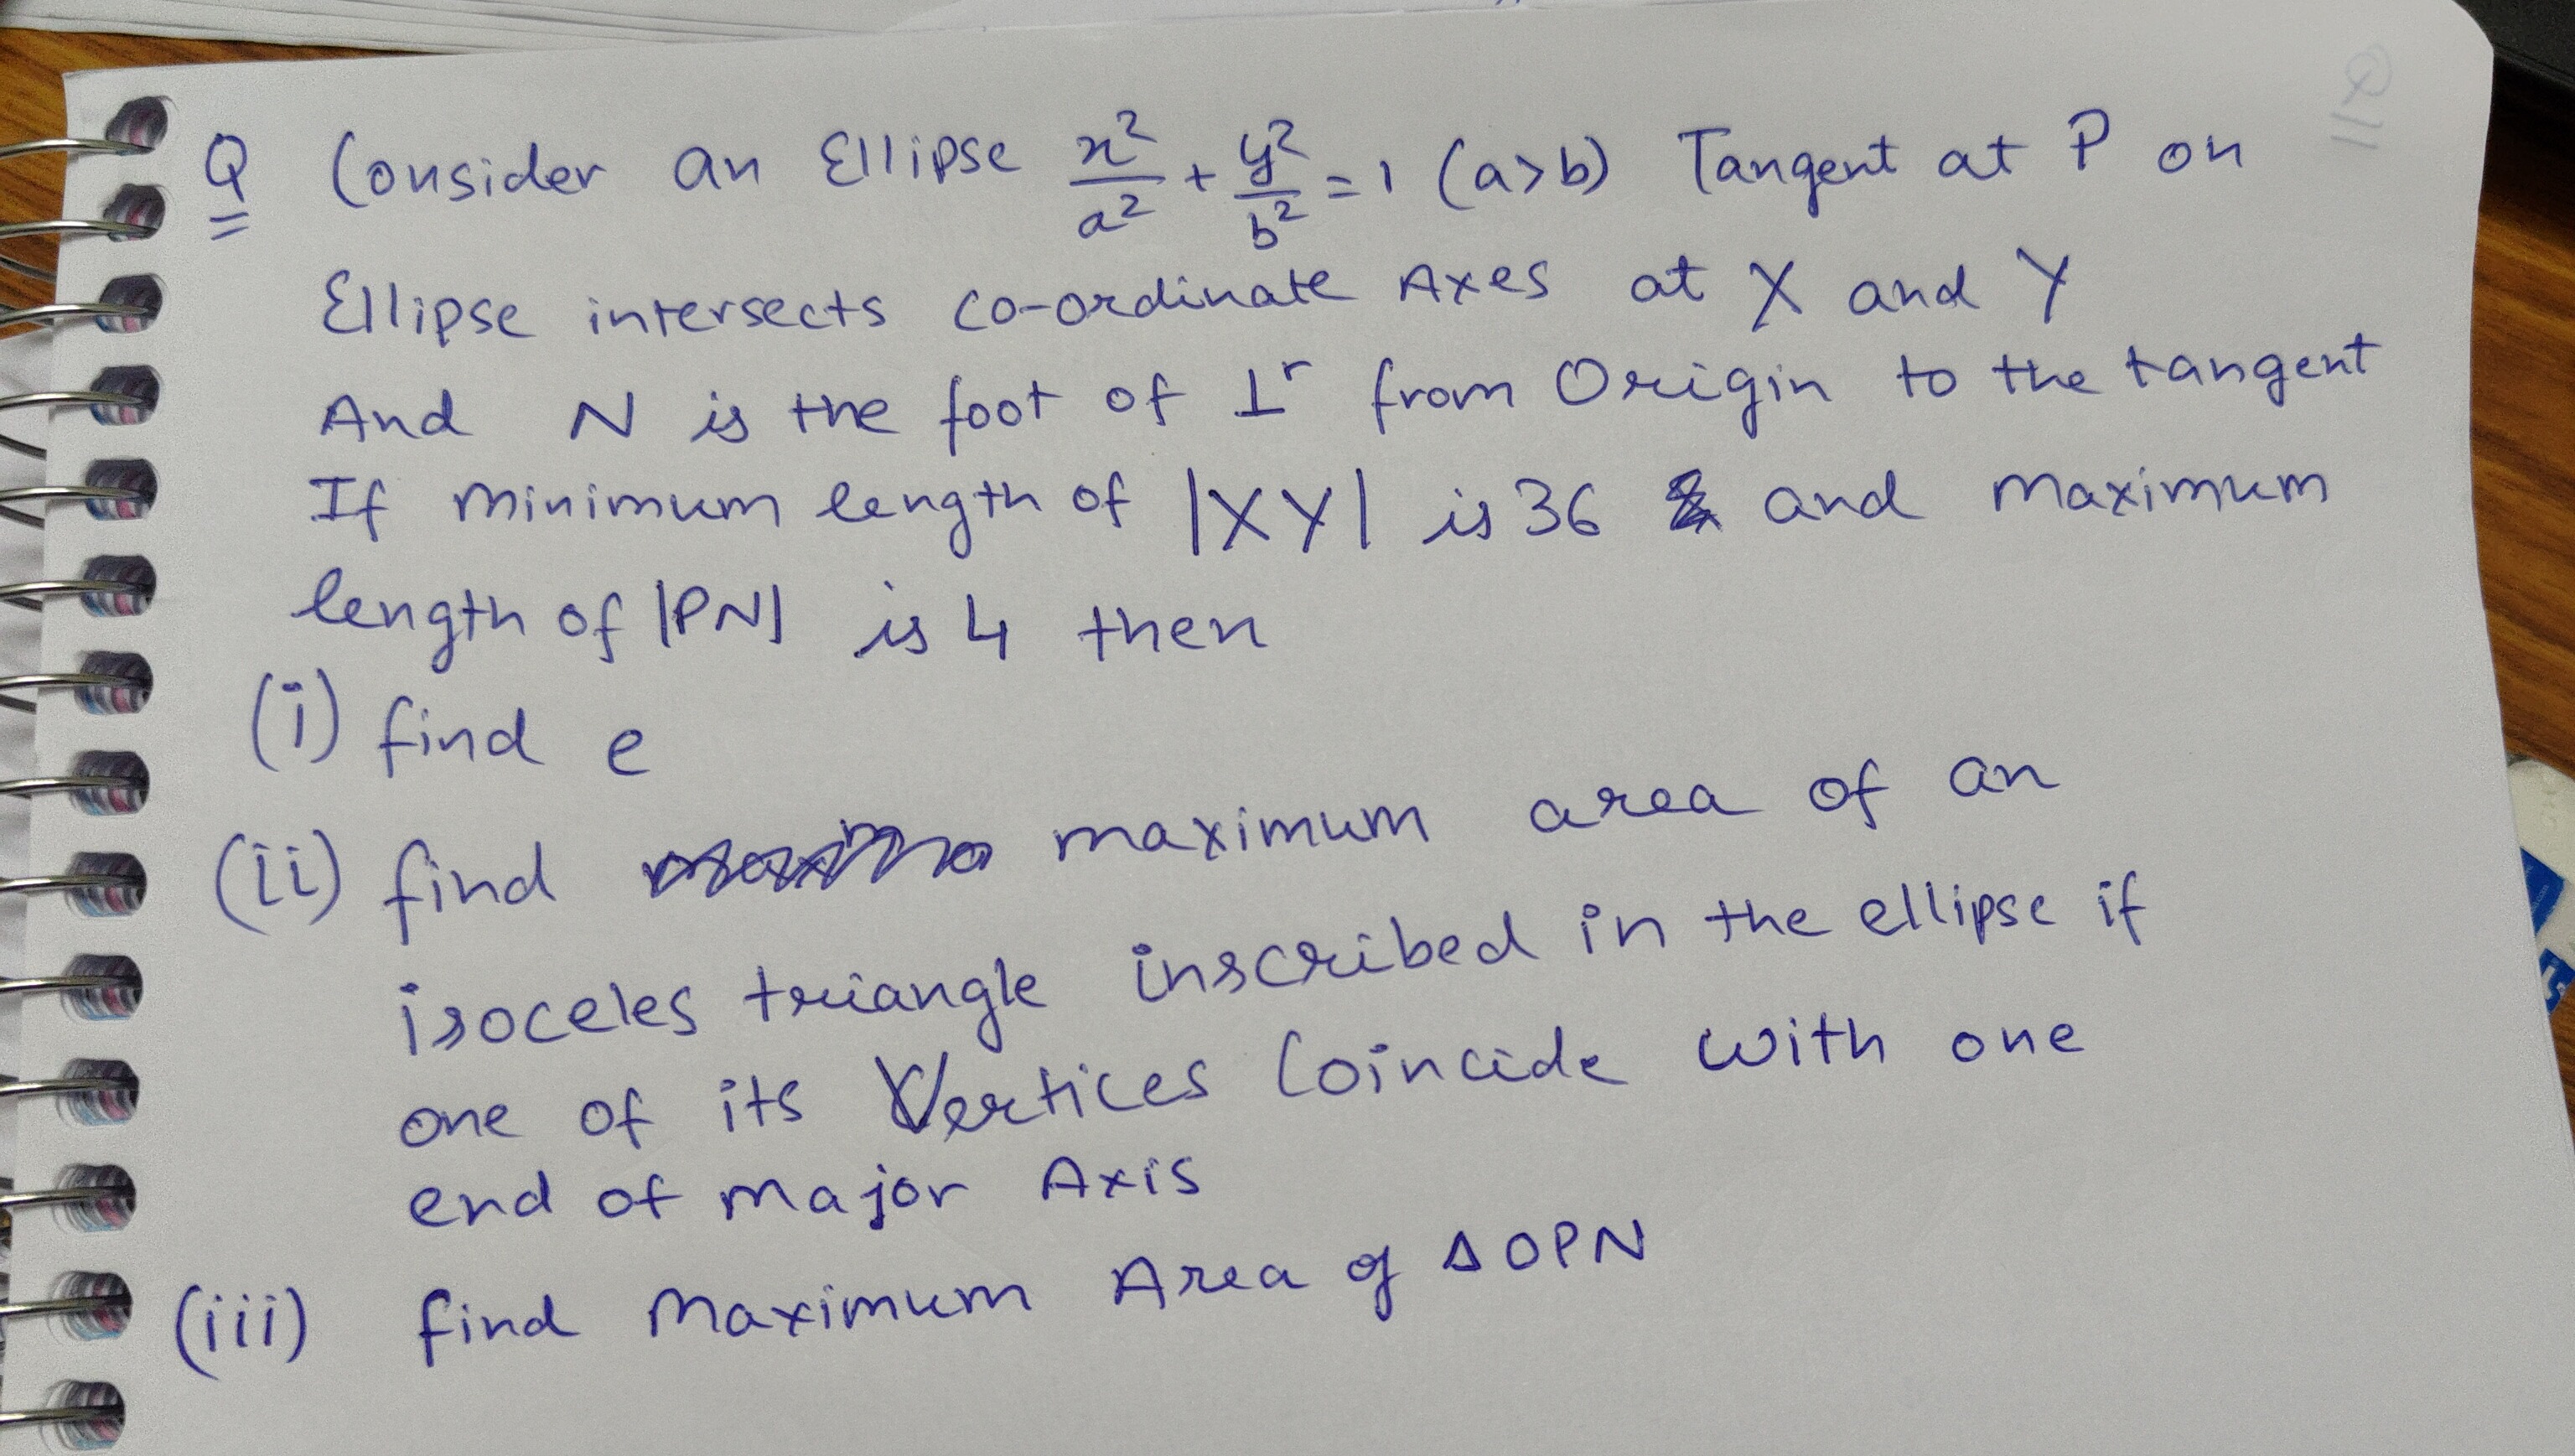 Q Consider an Ellipse x²/a² + y²/b² = 1 (a>b) Tangent at P on
Ellipse intersects co-ordinate Axes at X and Y
And N is the foot of ⊥ʳ from Origin to the tangent
If minimum length of |XY| is 36 and maximum
length of |PN| is 4 then
(i) find e
(ii) find maximum area of an
isoceles triangle inscribed in the ellipse if
one of its Vertices Coincide with one
end of major Axis
(iii) find Maximum Area of Δ OPN